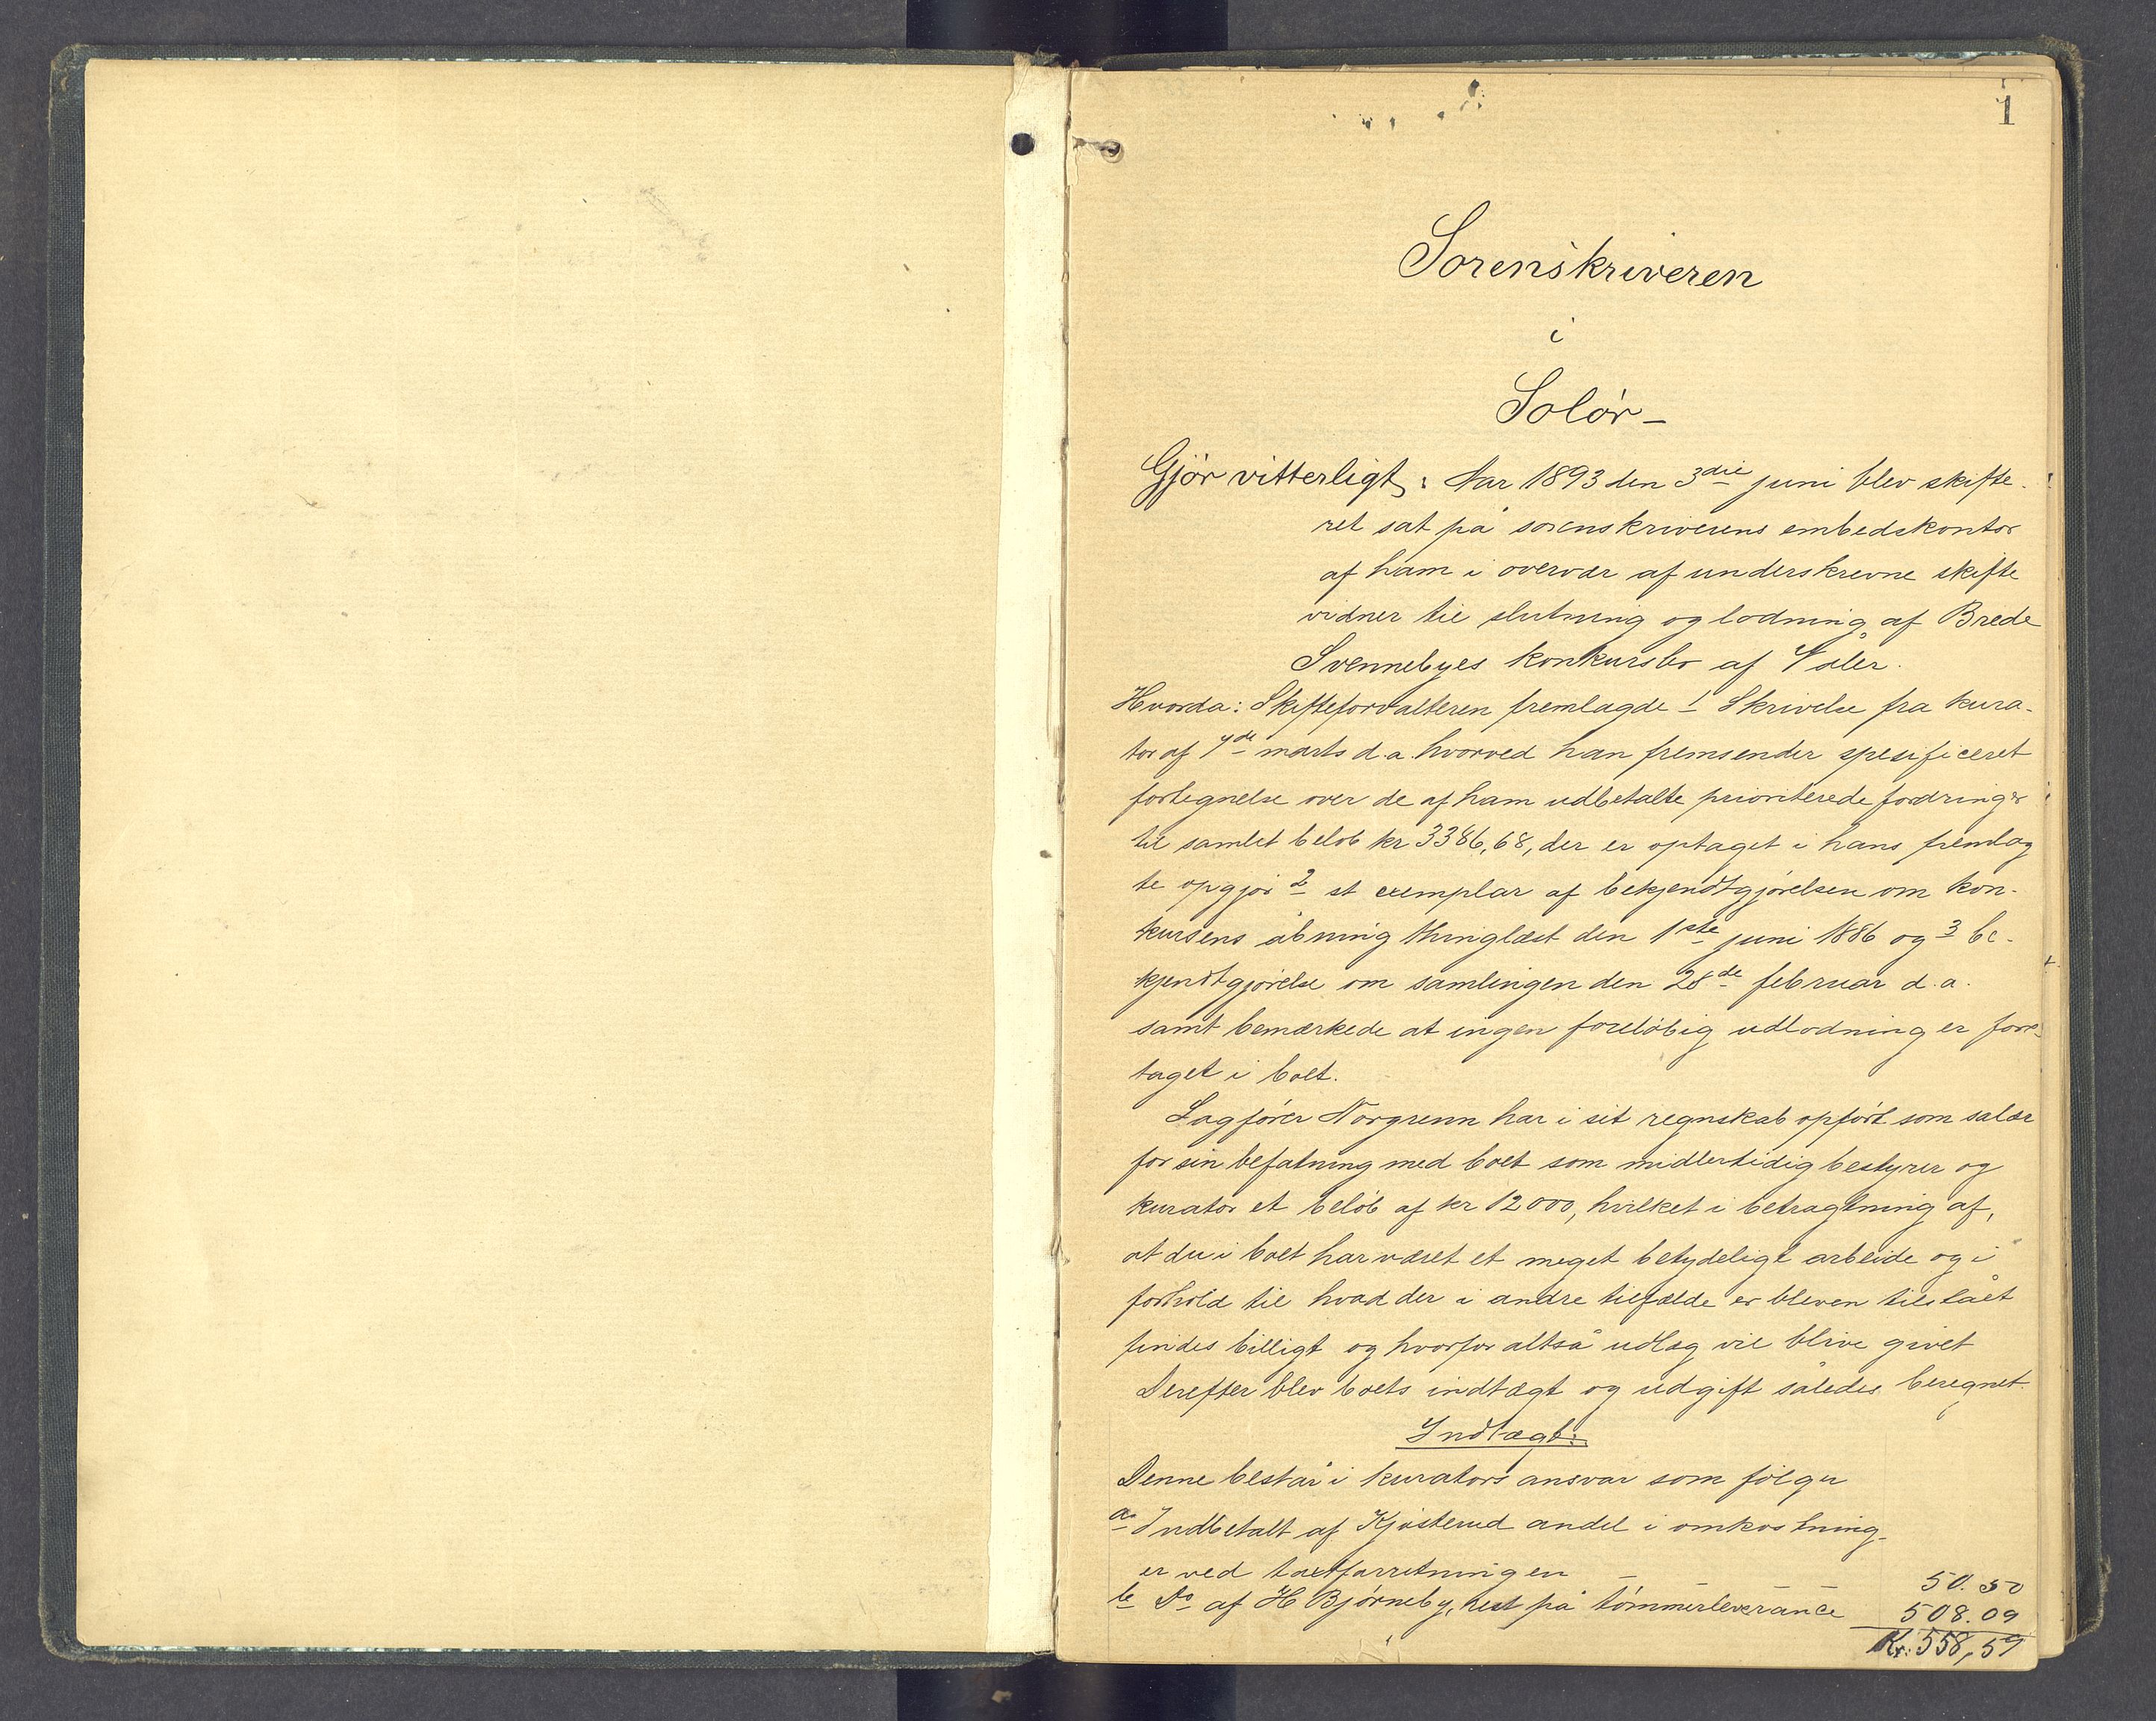 1
Sorenskriveren
i
Solør –
Gjør vitterligt: Aar 1893 den 3die juni blev skifte-
ret sat på sorenskriverens embedskontor
af ham i overvær af underskrevne skifte
vidner til slutning og lodning af Brede
Svennebyes konkursbo af Våler.
Hvorda: Skifteforvalteren fremlagde 1 Skrivelse fra kura-
tor af 7de marts d.a. hvorved han fremsender spesificeret
fortegnelse over de af ham udbetalte prioriterede fordringer
til samlet beløb kr 3386,68, der er optaget i hans fremlag
te opgjør 2 et exemplar af bekjendtgjørelsen om kon-
kursens åbning thinglæst den 1ste juni 1886 og 3 be-
kjendtgjørelse om samlingen den 28de februar d.a.
samt bemærkede at ingen foreløbig udlodning er fore-
taget i boet.
Sagfører Norgrenn har i sit regnskab opført som salær
for sin befatning med boet som midlertidig bestyrer og
kurator et beløb af kr 12000, hvilket i betragtning af,
at der i boet har været et meget betydeligt arbeide og i
forhold til hvad der i andre tilfælde er bleven tilslået
findes billigt og hvorfor altså udlæg vil blive givet
Derefter blev boets indtægt og udgift således beregnet.
Indtægt:
Denne består i kurators ansvar som følger
a Indbetalt af Kjøsterud andel i omkostning-
er ved taxtforretningen – – – – 50.50
b Do af H Bjørneby, rest på tømmerleverance 508.09
Kr: 558,59